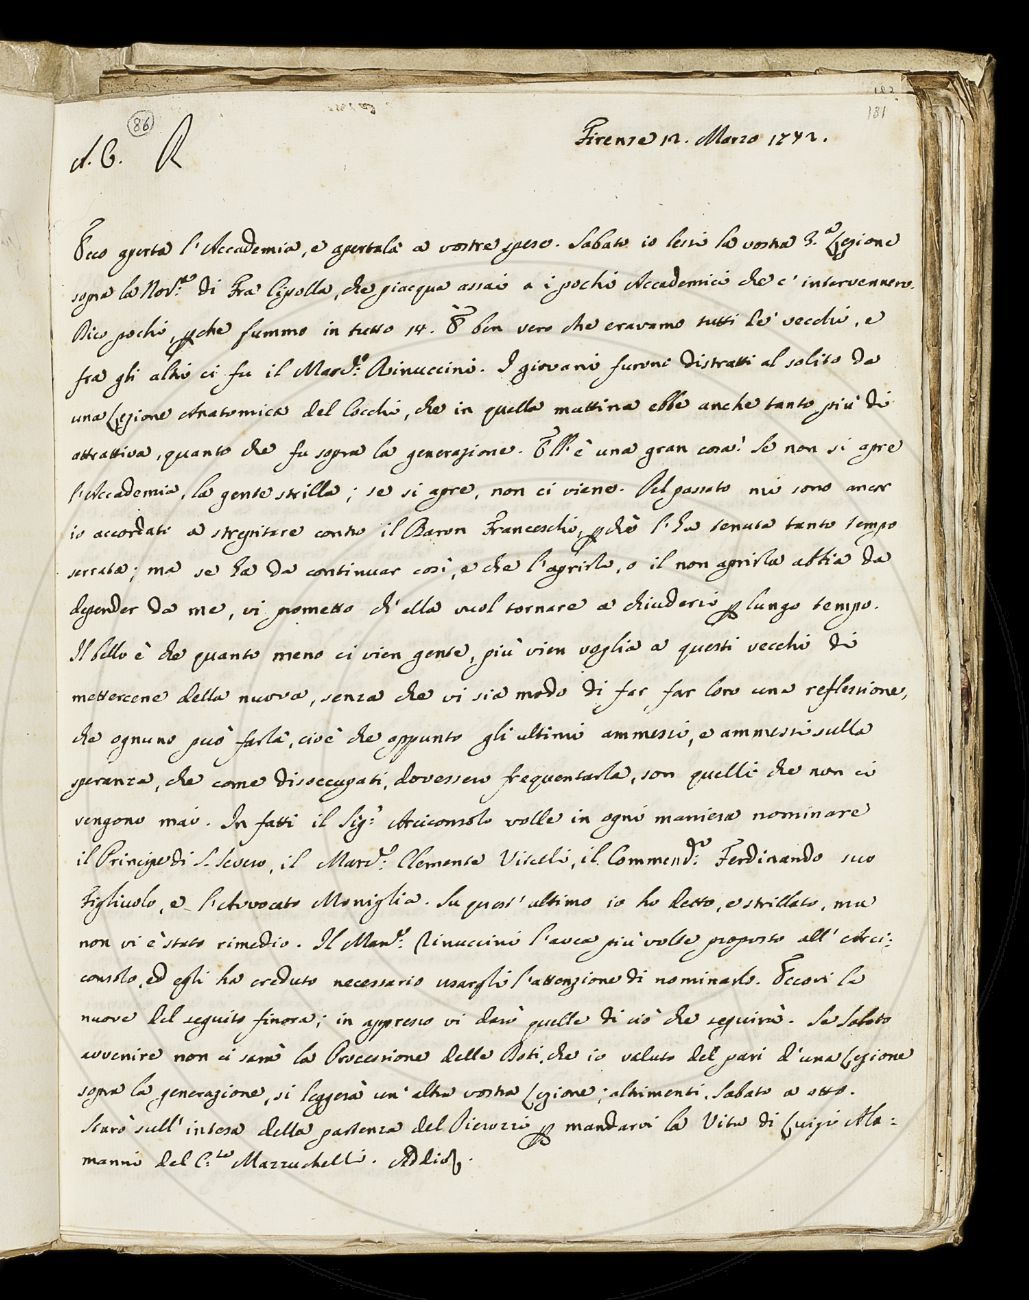 182
181
86
A. C. R
Firenze 12. Marzo 1742.
Ecco aperta l'Accademia, e apertala a vostre spese. Sabato io lessi la vostra 3.a Lezione
sopra la Nov.a di Fra Cipolla, che piacque assai a i pochi Accademici che c'intervennero.
Dico pochi, pche fummo in tutto 14. È ben vero che eravamo tutti de' vecchi, e
fra gli altri ci fu il March.e Rinuccini. I giovani furono distratti al solito da
una Lezione Anatomica del Cocchi, che in quella mattina ebbe anche tanto più di
attrattiva, quanto che fu sopra la generazione. Ell'è una gran cosa! Se non si apre
l'Accademia, la gente strilla; se si apre, non ci viene. Pel passato mi sono ancor
io accordato a strepitare contro il Baron Franceschi, pchè l'ha tenuta tanto tempo
serrata; ma se ha da continuar così, e che l'aprirla, o il non aprirla abbia da
depender da me, vi prometto ch'ella vuol tornare a chiudersi p lungo tempo.
Il bello è che quanto meno ci vien gente, più vien voglia a questi vecchi di
mettercene della nuova, senza che vi sia modo di far far loro una reflessione,
che ognuno può farla, cioè che appunto gli ultimi ammessi, e ammessi sulla
speranza, che come disoccupati, dovessero frequentarla, son quelli che non ci
vengono mai. In fatti il Sig.r Arciconsolo volle in ogni maniera nominare
il Principe di S. Severo, il March.e Clemente Vitelli, il Commend.re Ferdinando suo
Figliuolo, e l'Avvocato Moniglia. Su quest'ultimo io ho detto, e strillato, ma
non vi è stato rimedio. Il March.e Rinuccini l'avea più volte proposto all'Arci:
consolo, ed egli ha creduto necessario usargli l'attenzione di nominarlo. Eccovi le
nuove del seguito finora; in appresso vi darò quelle di ciò che seguirà. Se Sabato
avvenire non ci sarà la Processione delle Doti, che io valuto del pari d'una Lezione
sopra la generazione, si leggerà un'altra vostra Lezione; altrimenti, Sabato a otto.
Starò sull'intesa della partenza del Pierozzi p mandarvi la Vita di Luigi Ala=
manni del C.te Mazzuchelli. Addio.